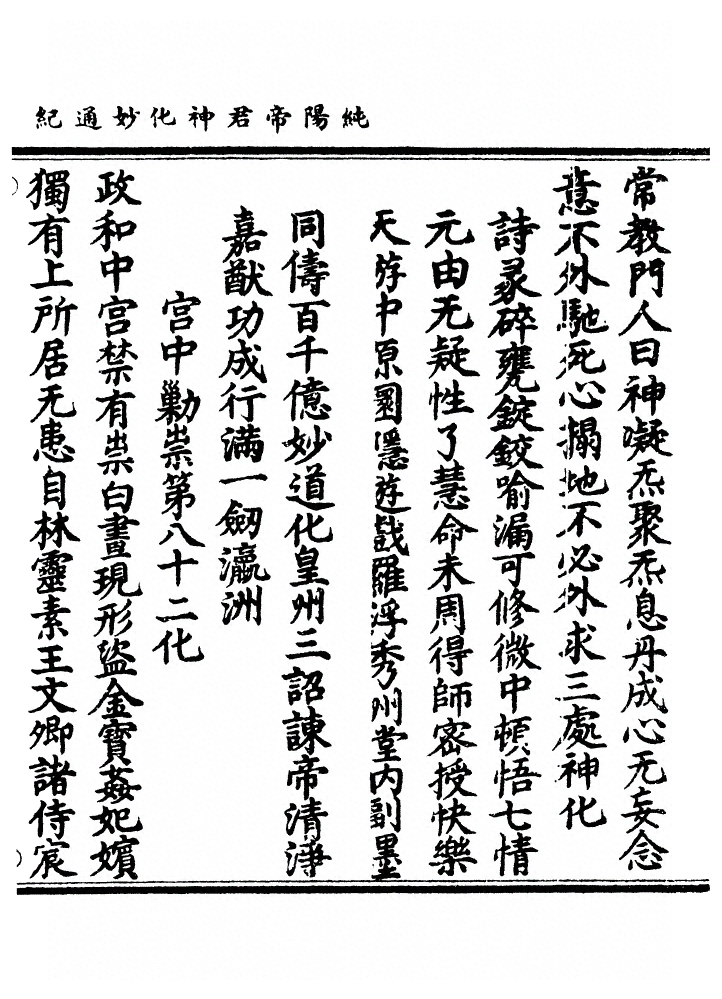 純陽帝君神化妙通紀
常教門人曰神凝炁聚炁息丹成心无妄念
意不外馳死心搨地不必外求三處神化
詩彖碎甕錠鉸喻漏可修微中頓悟七情
元由无疑性了慧命未周得師密授快樂
天游中原圂隱遊戲羅浮秀州堂内副墨
同儔百千億妙道化皇州三詔諫帝清淨
嘉猷功成行滿一劒瀛洲
宫中勦祟第八十二化
政和中宫禁有祟白晝現形盜金寶姦妃嬪
獨有上所居无患自林靈素王文卿諸侍宸